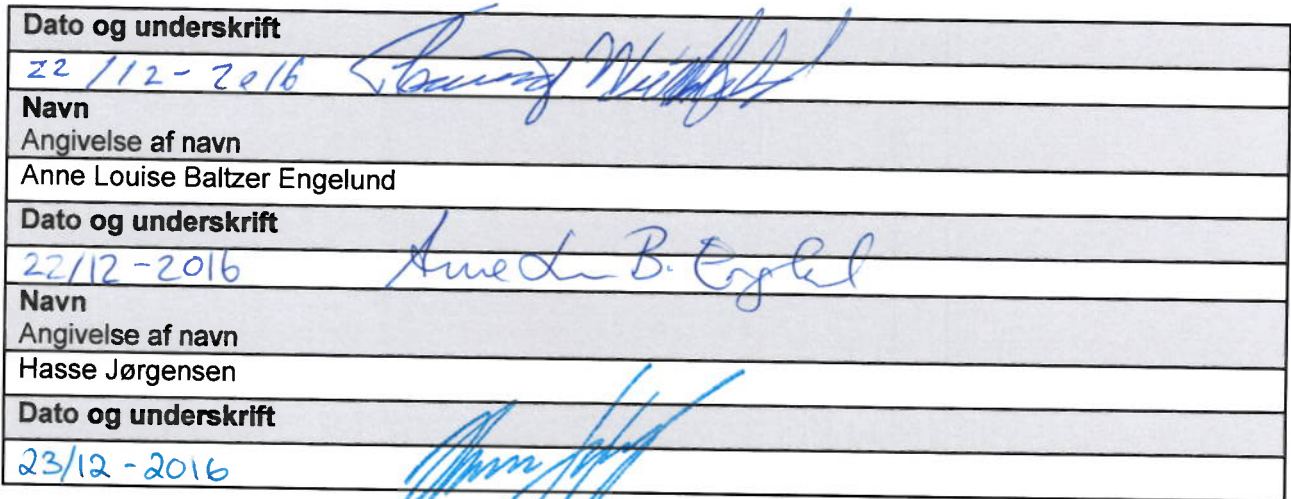 Dato og underskrift
22/12-2016
Navn
Angivelse af navn
Anne Louise Baltzer Engelund
Dato og underskrift
22/12-2016 B.
Navn
Angivelse af navn
Hasse Jørgensen
Dato og underskrift
23/12-2016